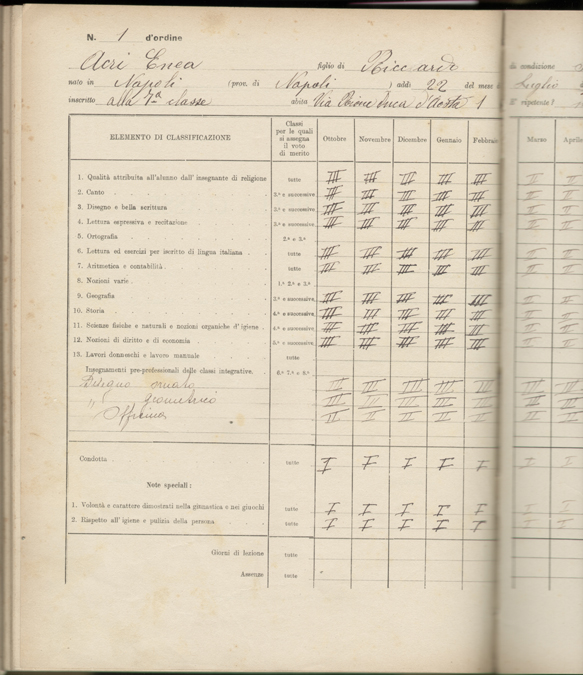 N. 1 d'ordine
Acri Enea figlio di Riccardo di condizione
nato in Napoli (prov. di Napoli) addì 22 del mese Luglio
inscritto alla 7ª classe abita Via Enea d'Aosta 1 E' ripetente?
ELEMENTO DI CLASSIFICAZIONE Classi per le quali si assegna il voto di merito Ottobre Novembre Dicembre Gennaio Febbraio Marzo Aprile
1. Qualità attribuita all'alunno dall'insegnante di religione tutte III III III III III II II
2. Canto 3.ª e successive III III III III III II II
3. Disegno e bella scrittura 2.ª e successive III III III III III II II
4. Lettura espressiva e recitazione 3.ª e successive III III III III III II II
5. Ortografia 2.ª e 3.ª
6. Lettura ed esercizi per iscritto di lingua italiana tutte III III III III III II II
7. Aritmetica e contabilità tutte III III III III III II II
8. Nozioni varie 1.ª 2.ª e 3.ª
9. Geografia 3.ª e successive III III III III III II II
10. Storia 4.ª e successive III III III III III II II
11. Scienze fisiche e naturali e nozioni organiche d'igiene 4.ª e successive III III III III III II II
12. Nozioni di diritto e di economia 5.ª e successive III III III III III II II
13. Lavori donneschi e lavoro manuale tutte
Insegnamenti pre-professionali delle classi integrative 6.ª 7.ª 8.ª
Disegno ornato III III III III III III III
" geometrico III III III III III III III
Officina II II II II II II II
Condotta tutte I I I I I I I
Note speciali:
1. Volontà e carattere dimostrati nella ginnastica e nei giuochi tutte I I I I I I I
2. Rispetto all'igiene e pulizia della persona tutte I I I I I I I
Giorni di lezione tutte
Assenze tutte